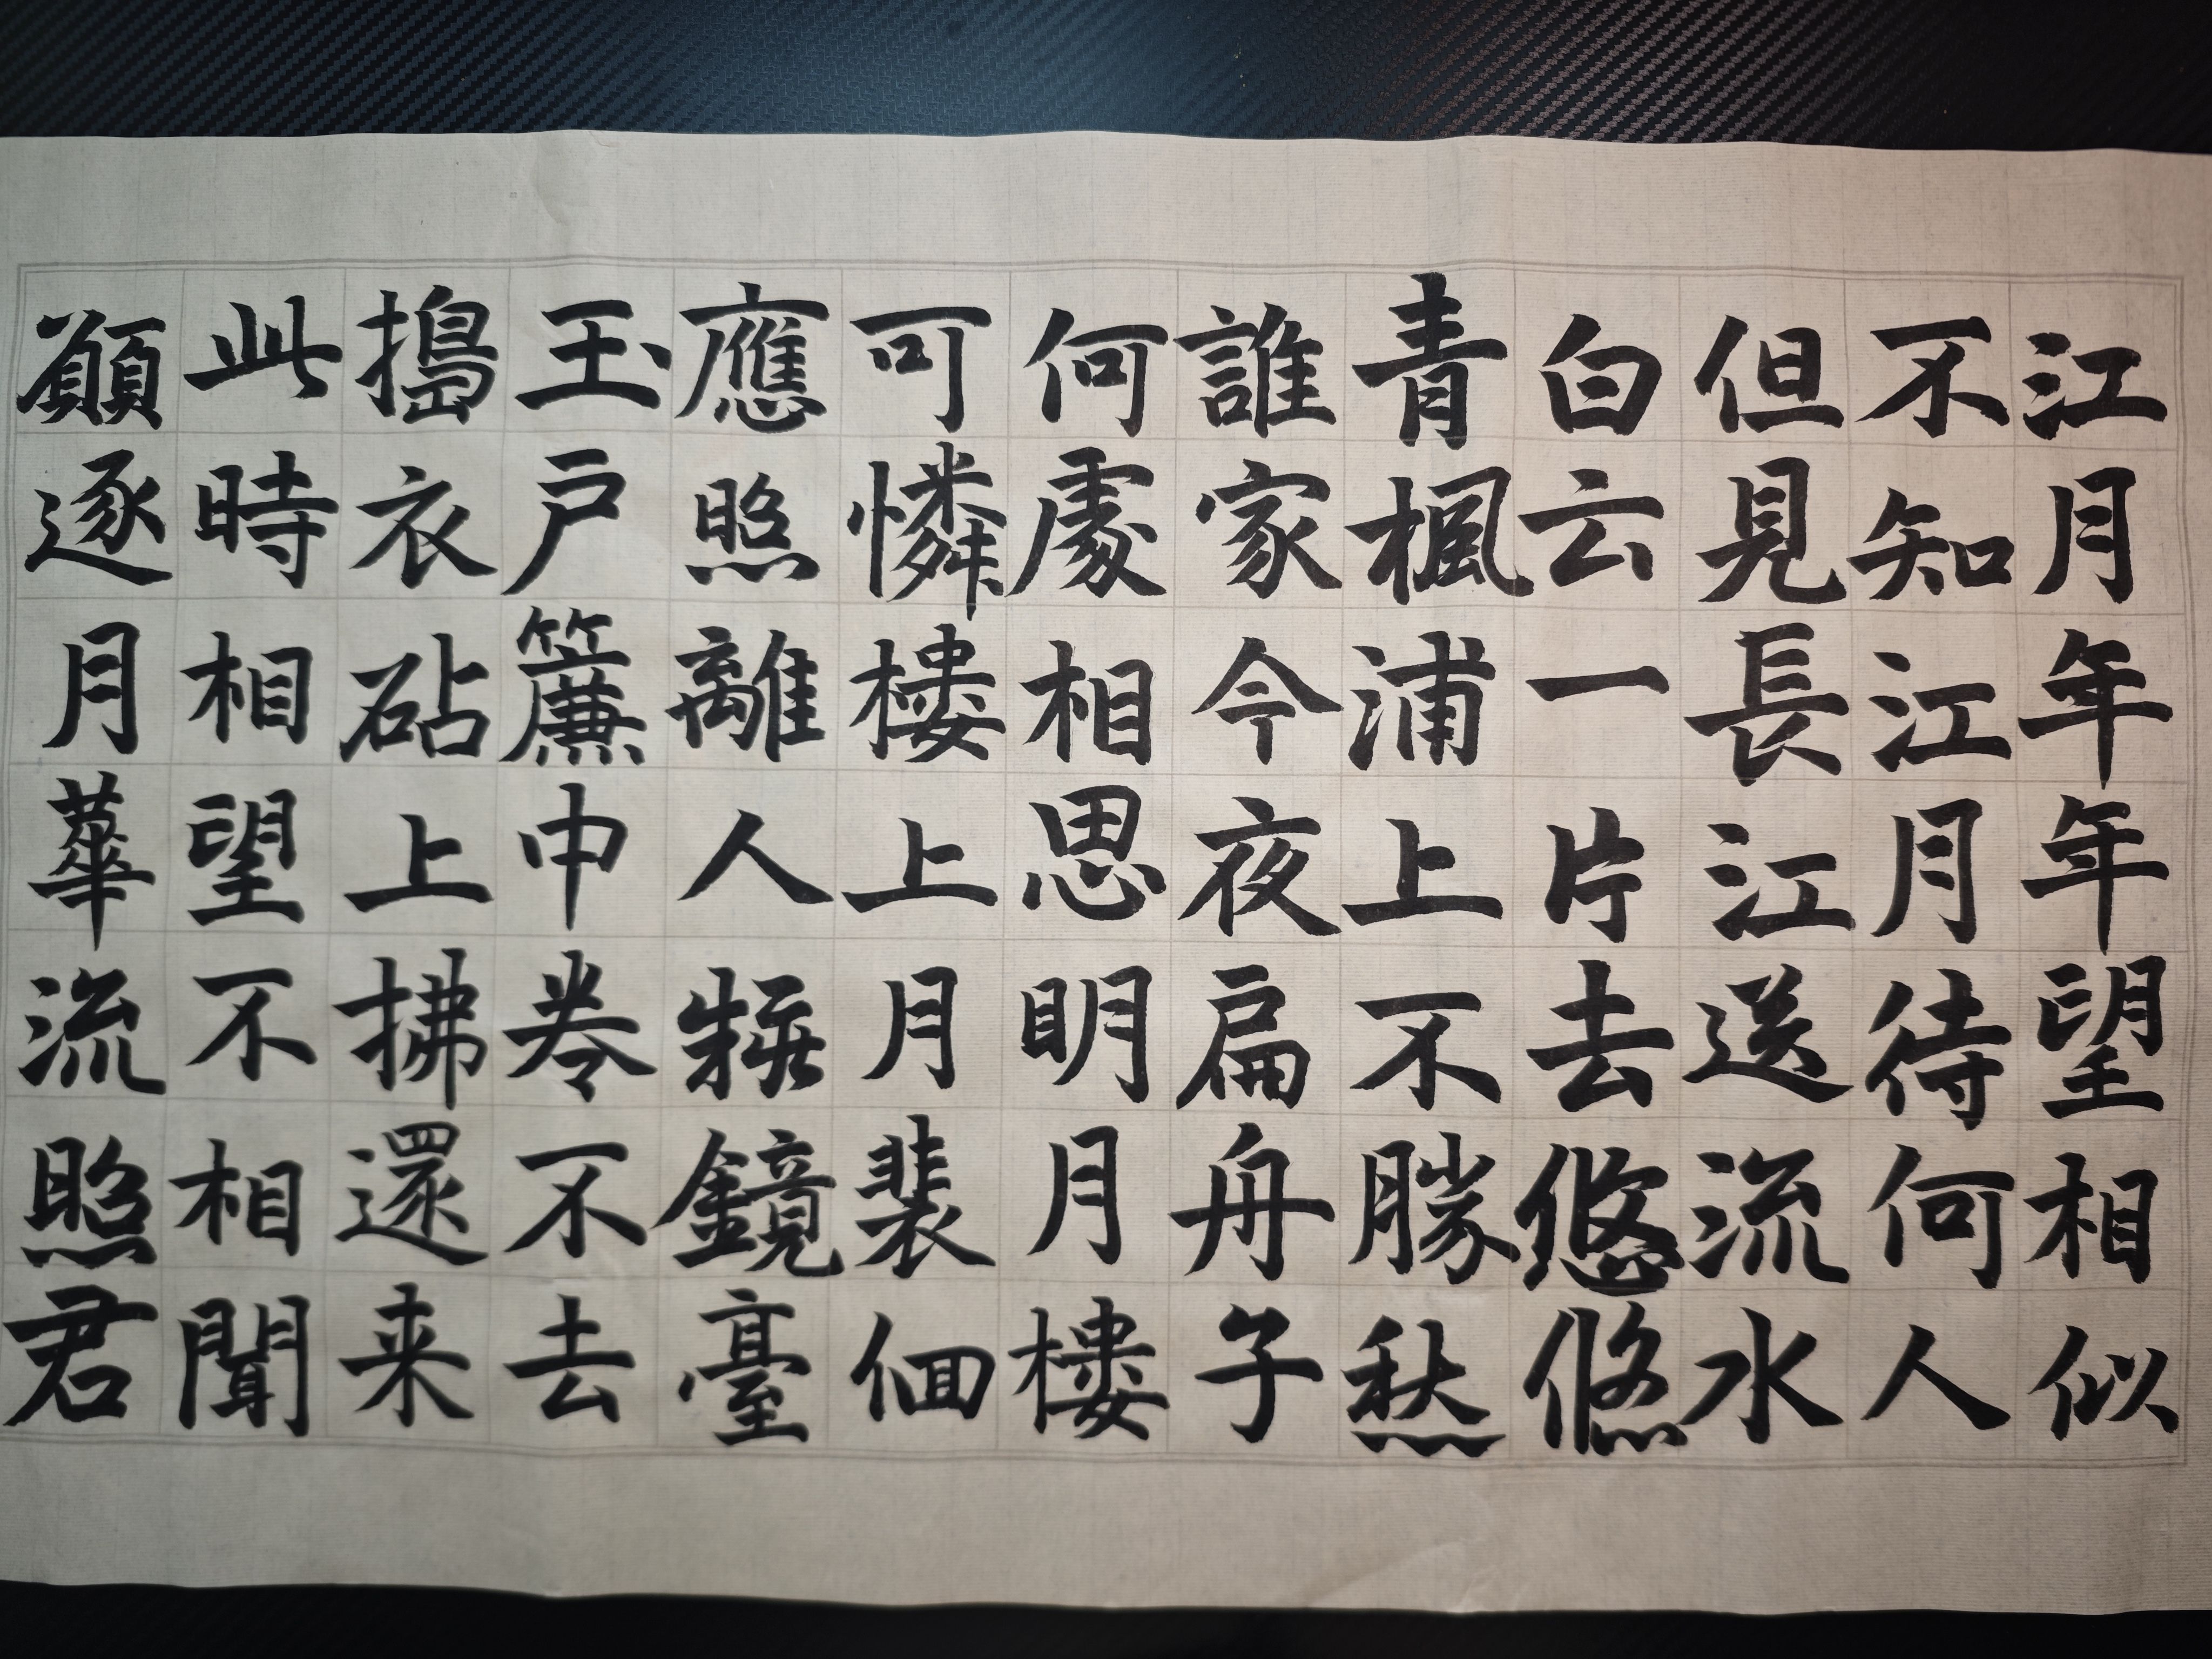 江月年年望相似
不知江月待何人
但見長江送流水
白云一片去悠悠
青楓浦上不勝愁
誰家今夜扁舟子
何處相思明月樓
可憐樓上月裴佪
應照離人粧鏡臺
玉戶簾中卷不去
搗衣砧上拂還来
此時相望不相聞
願逐月華流照君